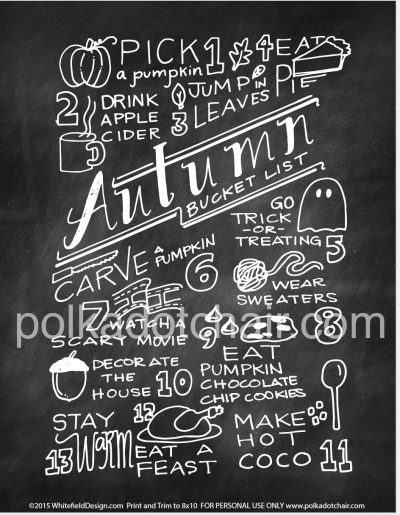 PICK 1
a pumpkin
4 EAT
PIE
2 DRINK
APPLE
CIDER
JUMP IN
3 LEAVES
Autumn
BUCKET LIST
GO
TRICK
-OR-
TREATING 5
CARVE A
PUMPKIN
6
WEAR
SWEATERS
7
WATCH A
SCARY MOVIE
polkadotchair.com
8
9
EAT
PUMPKIN
CHOCOLATE
CHIP COOKIES
DECORATE
THE
HOUSE 10
STAY
13 Warm
12
EAT A
FEAST
MAKE
HOT
COCO 11
©2015 WhitefieldDesign.com Print and Trim to 8x10 FOR PERSONAL USE ONLY www.polkadotchair.com